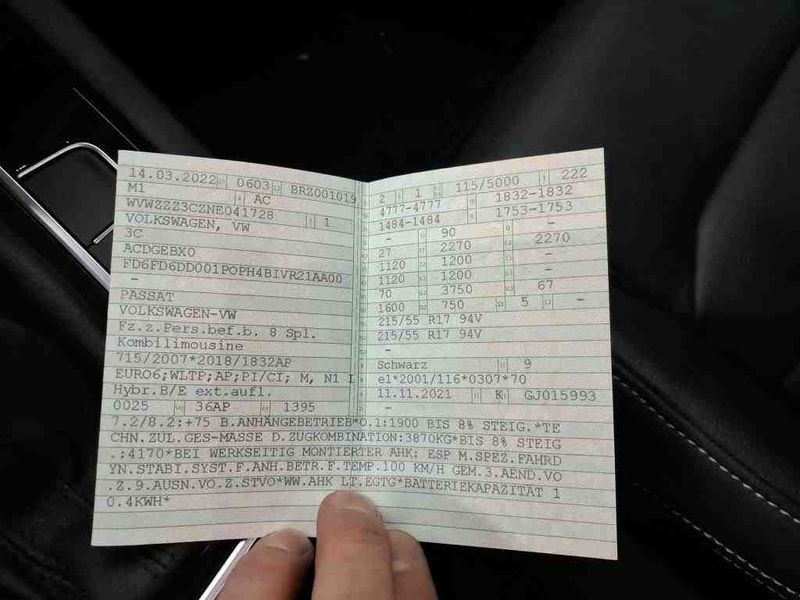 14.03.2022 0603 BRZ001019
M1 AC
WVWZZZ3CZNE041728 1
VOLKSWAGEN, VW
3C
ACDGEBX0
FD6FD6DD001POPH4BIVR21AA00
–
PASSAT
VOLKSWAGEN-VW
Fz.z.Pers.bef.b. 8 Spl.
Kombilimousine
715/2007*2018/1832AP
EURO6;WLTP;AP;PI/CI; M, N1 I
Hybr.B/E ext.aufl.
0025 36AP 1395
2 1 115/5000 222
4777-4777 1832-1832
1484-1484 1753-1753
– 90 –
27 2270 2270
1120 1200 –
1120 1200 –
70 3750 67
1600 750 5 –
215/55 R17 94V
215/55 R17 94V
–
Schwarz 9
e1*2001/116*0307*70
11.11.2021 K GJ015993
–
7.2/8.2:+75 B.ANHÄNGEBETRIEB*O.1:1900 BIS 8% STEIG.*TE
CHN.ZUL.GES-MASSE D.ZUGKOMBINATION:3870KG*BIS 8% STEIG
.:4170*BEI WERKSEITIG MONTIERTER AHK: ESP M.SPEZ.FAHRD
YN.STABI.SYST.F.ANH.BETR.F.TEMP.100 KM/H GEM.3.AEND.VO
.Z.9.AUSN.VO.Z.STVO*WW.AHK LT.EGTG*BATTERIEKAPAZITÄT 1
0.4KWH*